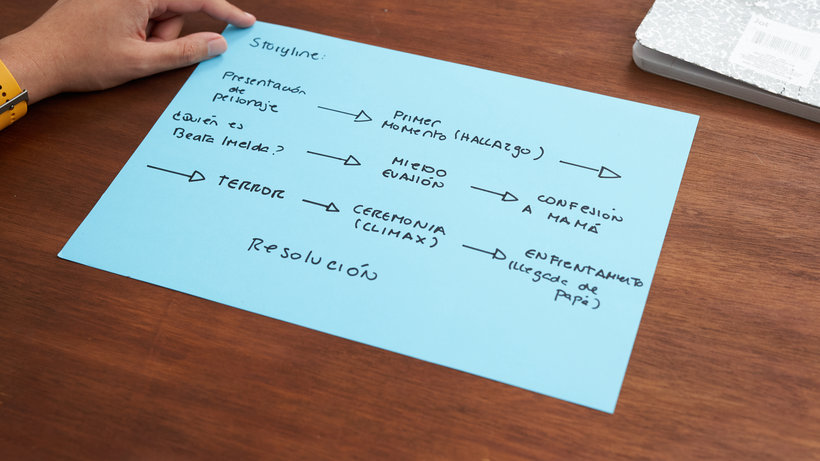 Storyline:
Presentación
de
personaje
Primer
MOMENTO (HALLAZGO)
¿Quién es
Beata Imelda?
MIEDO
EVASIÓN
CONFESIÓN
A MAMÁ
TERROR
CEREMONIA
(CLIMAX)
ENFRENTAMIENTO
(llegada de
papá)
Resolución